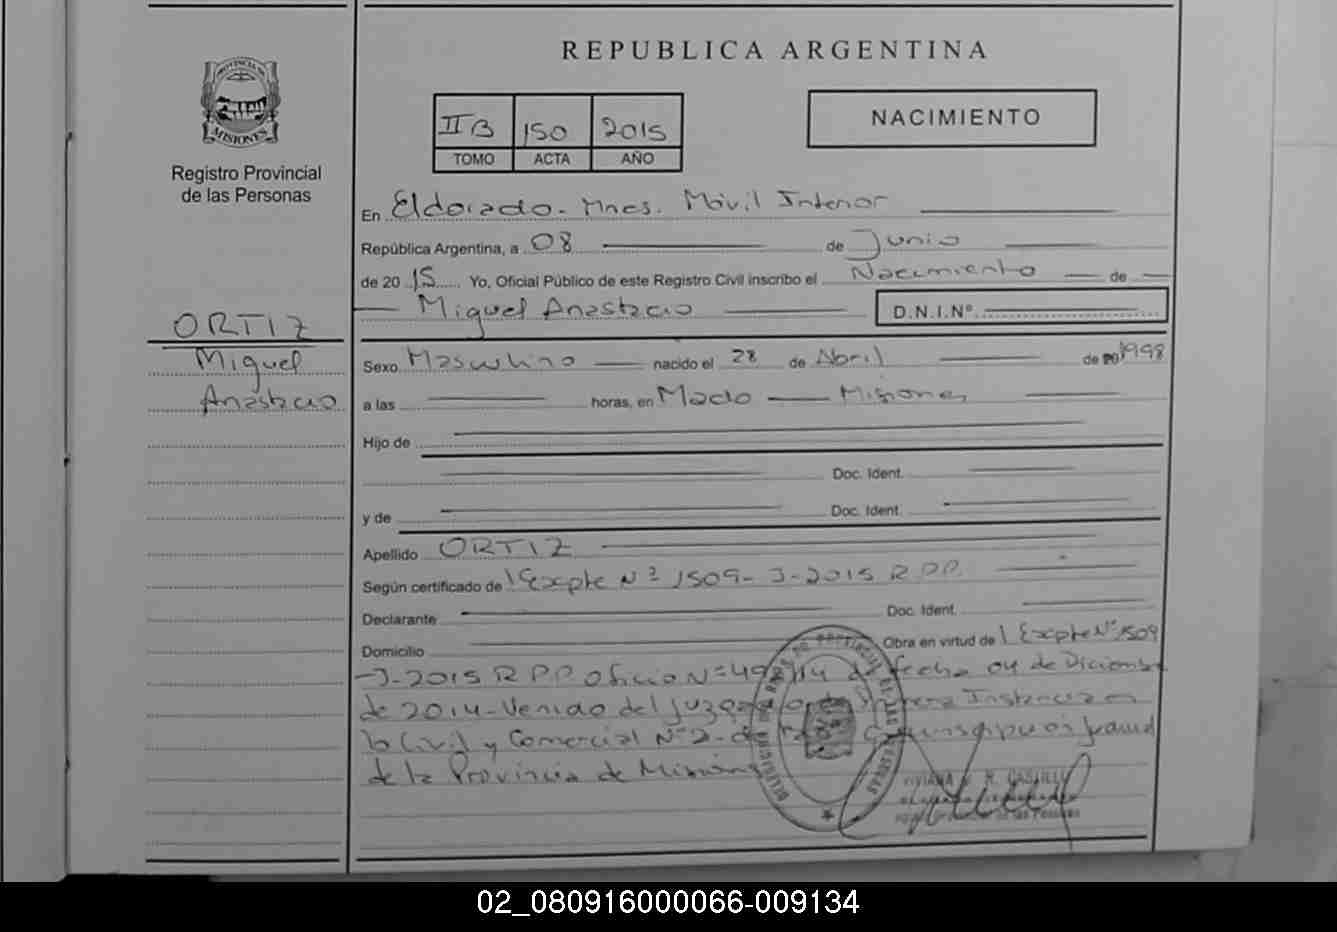 REPUBLICA ARGENTINA
PROVINCIA DE
MISIONES
Registro Provincial
de las Personas
II B 150 2015
TOMO ACTA AÑO
NACIMIENTO
En Eldorado - Mnes. Móvil Interior
República Argentina, a 08 de Junio
de 20 15 Yo, Oficial Público de este Registro Civil inscribo el Nacimiento de
Miguel Anastacio D.N.I.Nº
ORTIZ
Miguel
Anastacio
Sexo Masculino nacido el 28 de Abril de 1998
a las horas, en Mado Misiones
Hijo de
Doc. Ident.
y de Doc. Ident.
Apellido ORTIZ
Según certificado de Expte Nº 1509-J-2015 R.P.P.
Declarante Doc. Ident.
Domicilio Obra en virtud de Expte Nº 1509
-J-2015 R.P.P. Oficio Nº fecha 04 de Diciembre
de 2014 - Venido del Juzgado de Primera Instancia en
lo Civil y Comercial Nº 2 -
de la Provincia de Misiones
DE LAS PERSONAS
VIVIANA R. CASTILLO
de las Personas
02_080916000066-009134